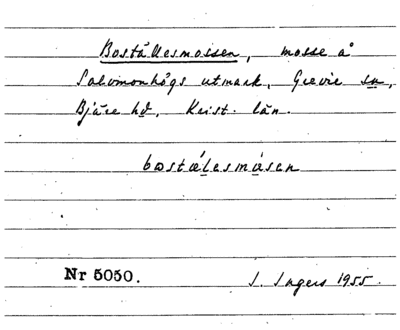 Boställesmossen, mosse å
Salomonhögs utmark, Grevie sn,
Bjäre hd, Krist. län.
bostälesmåsen
Nr 5050.
I. Ingers 1955.